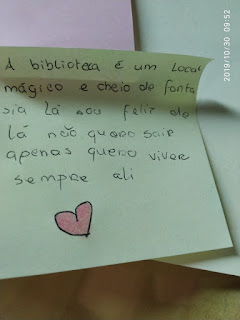 A biblioteca é um local
mágico e cheio de fanta
sia lá sou feliz de
lá não quero sair
apenas quero viver
sempre ali
2019/10/30 09:52